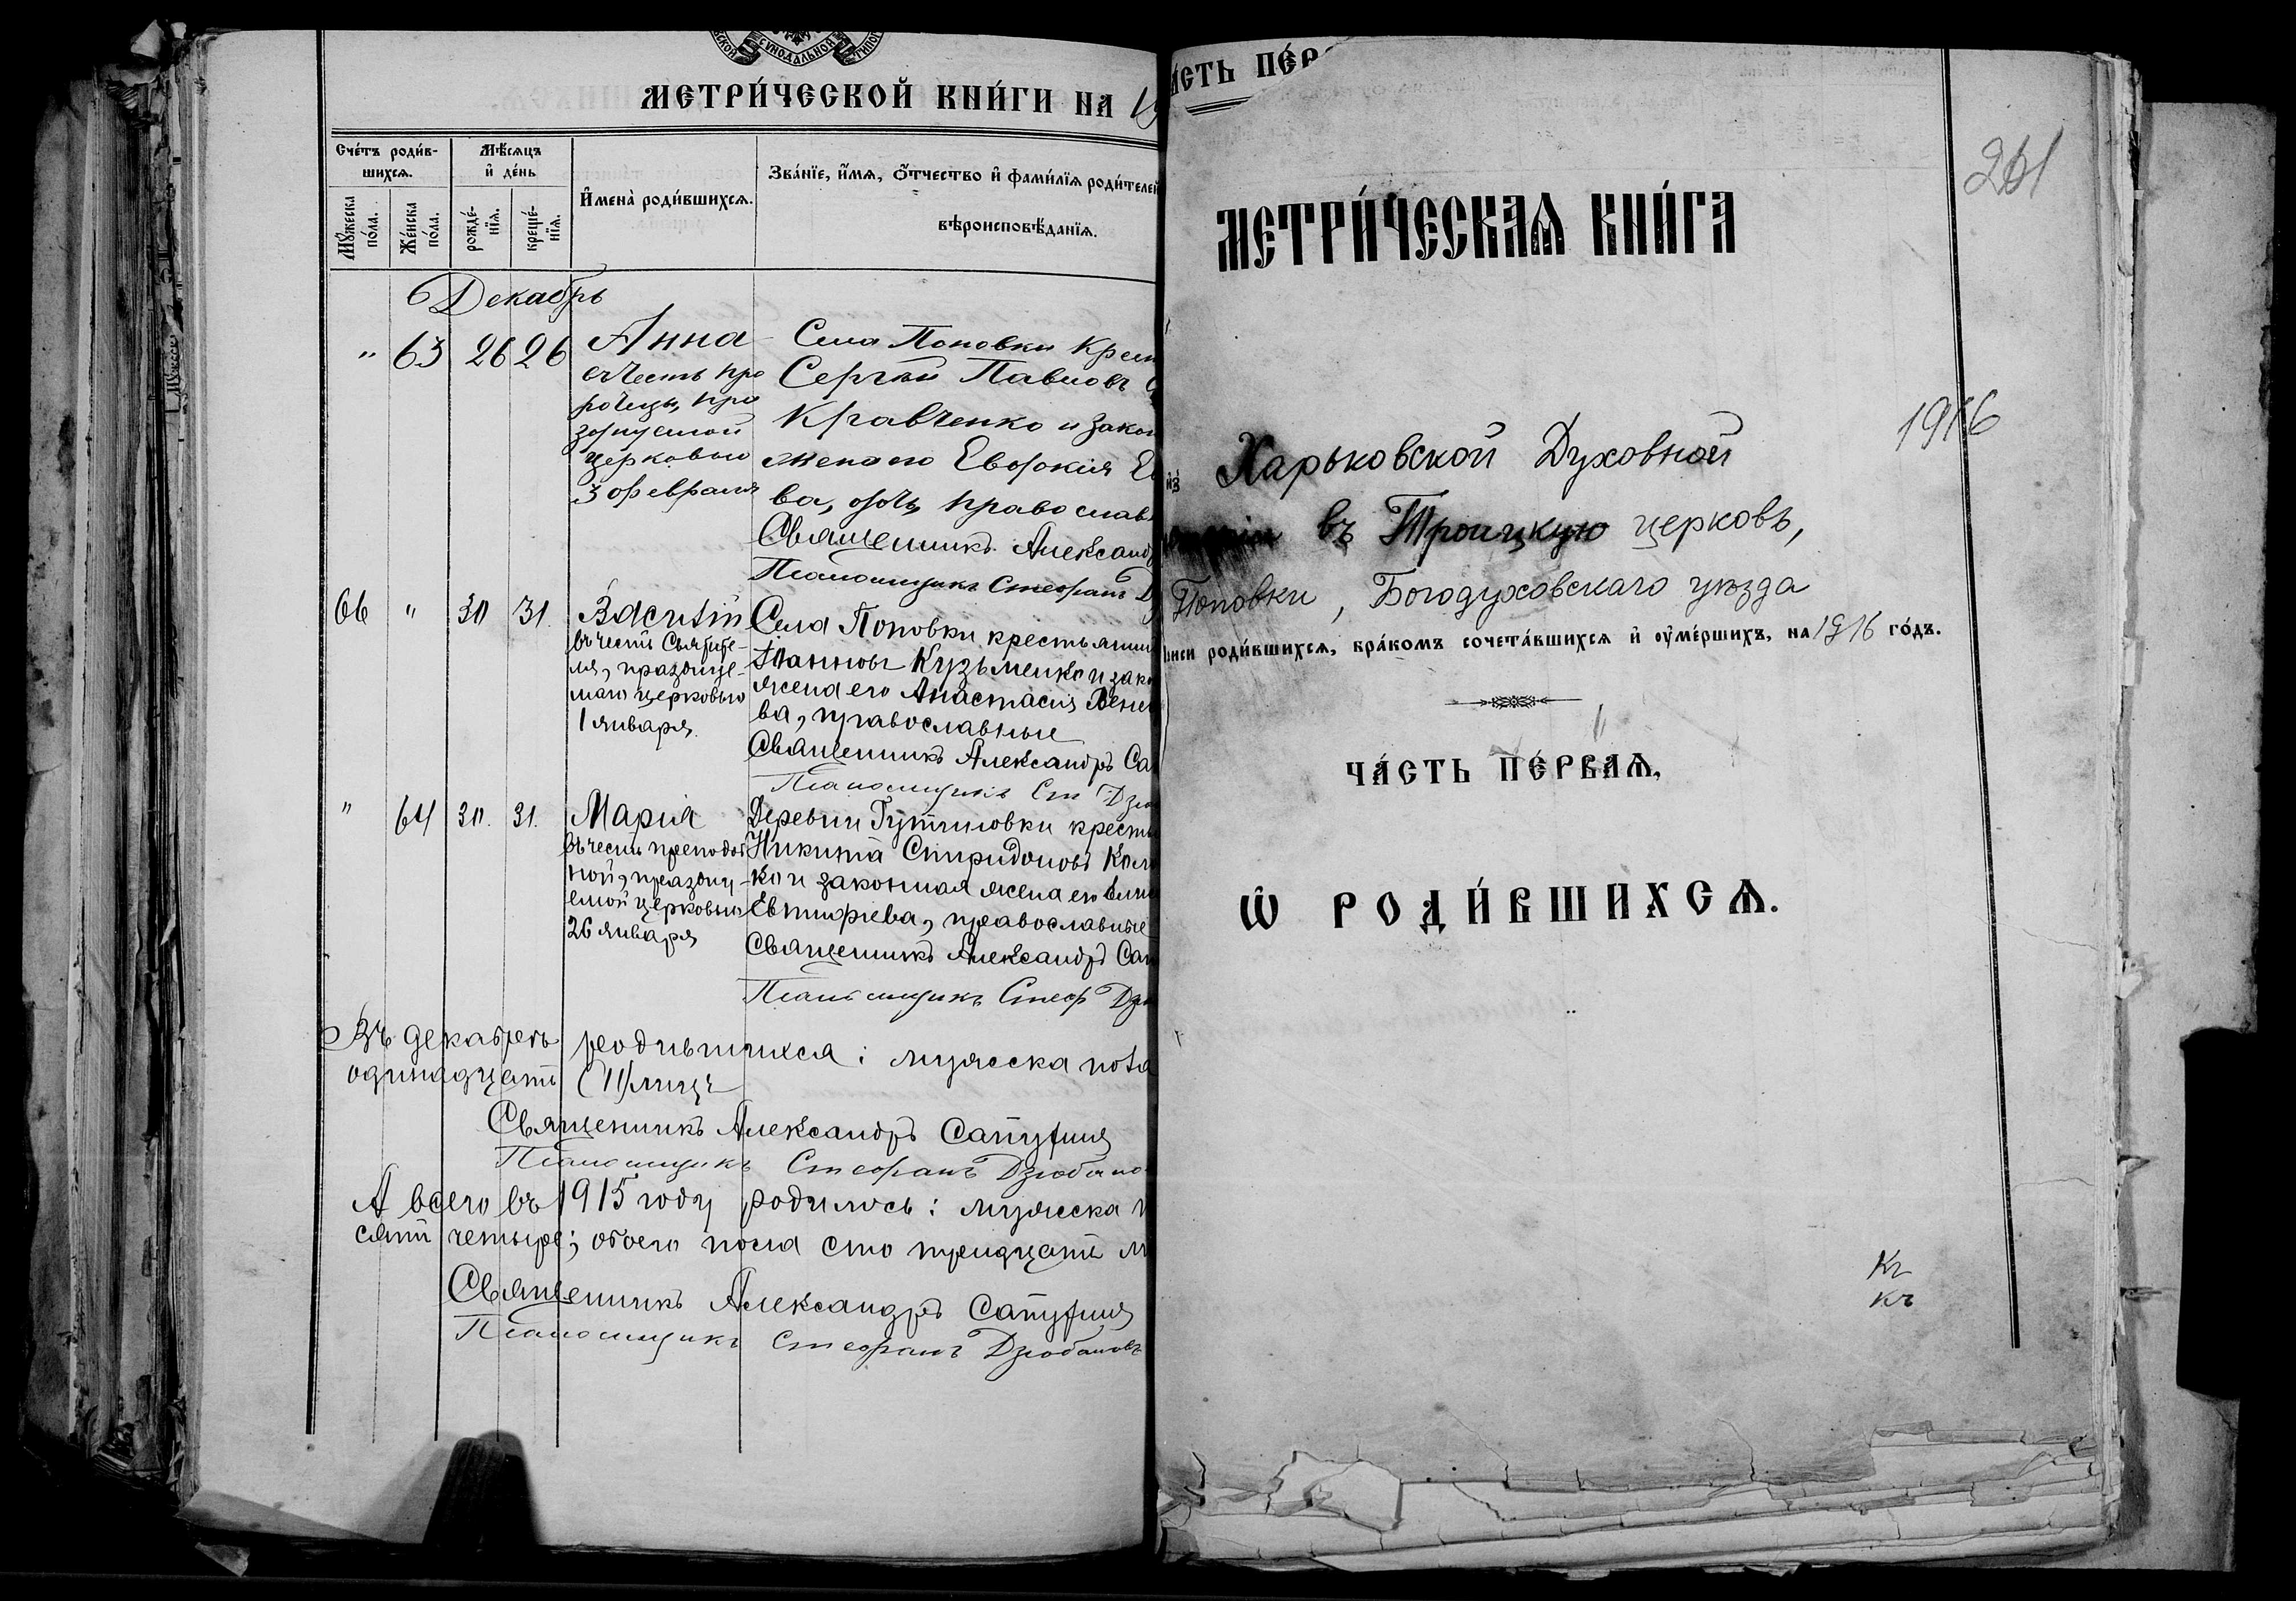 СѴНОДАЛЬНОЙ
МЕТРИ́ЧЕСКОЙ КНИ́ГИ НА 19
Сче́тъ роди́в-
шихся.
Мѣ́сяцъ
и҆ де́нь
И҆мена̀ роди́вшихся.
Зва́нїе, и҆́мя, ѻ҆́тчество и҆ фами́лїя роди́телей
вѣроисповѣ́данїя.
Мꙋ́жеска
по́ла.
Же́нска
по́ла.
рожде́-
нїя.
креще́-
нїя.
Декабрь
" 63 26 26 Анна
въ честь про
рочицы, пра
зднуемой
церковью
3 февраля
Села Поповки Крест
Сергѣй Павловъ
Кравченко и закон
жена его Евдокія
ва, оба православ
Священникъ Александ
Псаломщикъ Стефанъ Д
66 " 30 31. Василій
въ честь Святите-
ля, праздну-
маго церковью
1 января.
Села Поповки крестьянин
Іоанновъ Кузьменко и зако
жена его Анастасія
ва, православные
Священникъ Александръ Сап
Псаломщикъ Ст Дзюб
" 64 30. 31. Марія
въ честь преподоб
ной, праздну-
емой церковью
26 января
Деревни крестья
Никита Спиридоновъ
ко и законная жена его
Евтифіева, православные
Священникъ Александръ Сап
Псаломщикъ Стеф Дзю
Въ декабрѣ родившихся: мужеска пола
одинадцать (11) лицъ
Священникъ Александръ Сапухинъ
Псаломщикъ Стефанъ Дзюбано
А всего въ 1915 году родилось: мужеска п
сятъ четыре; обоего пола сто тридцать
Священникъ Александръ Сапухинъ
Псаломщикъ Стефанъ Дзюбановъ
ЧАСТЬ ПЕ́Р
261
МЕТРИ́ЧЕСКАѦ КНИ́ГА
1916
и҆з̾ Харьковской Духовной
въ Троицкую церковь,
Поповки, Богодуховскаго уѣзда
писи роди́вшихся, бра́комъ сочета́вшихся и҆ ᲂу҆ме́ршихъ, на 1916 го́дъ.
ЧА́СТЬ ПЕ́РВАѦ,
Ѡ҆ РОДИ́ВШИХСѦ.